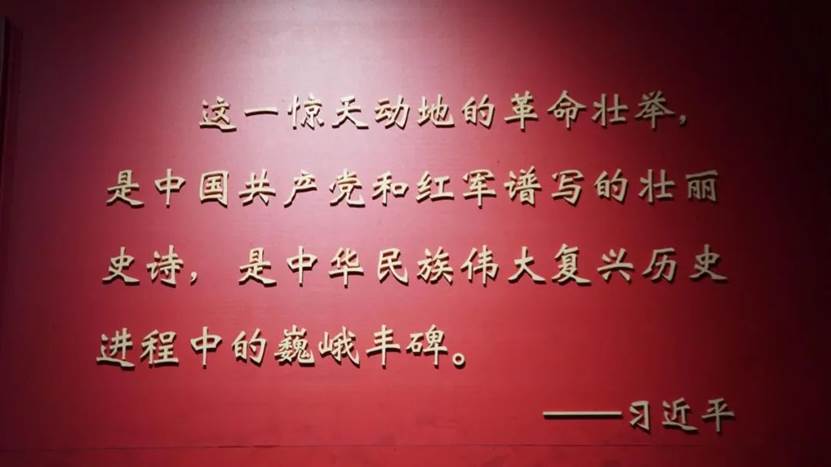 这一惊天动地的革命壮举，
是中国共产党和红军谱写的壮丽
史诗，是中华民族伟大复兴历史
进程中的巍峨丰碑。
——习近平